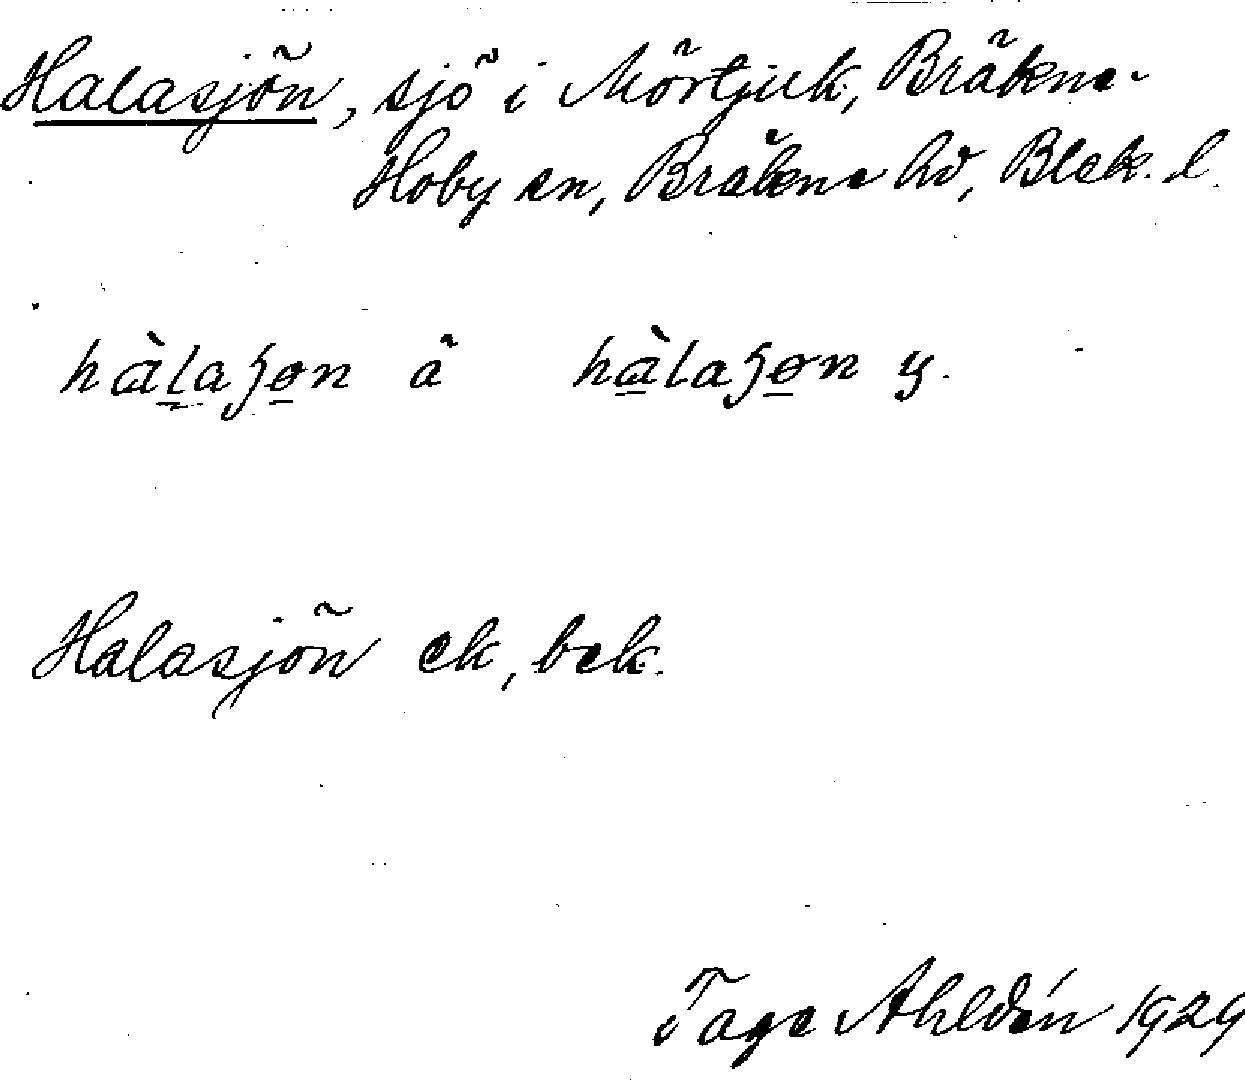 Halasjön, sjö i Mörtjuk, Bräkne-
Hoby sn, Bräkne hd, Blek. l.
hàlaʃon ä hàlaʃon y.
Halasjön ek, bek.
Tage Ahldén 1929